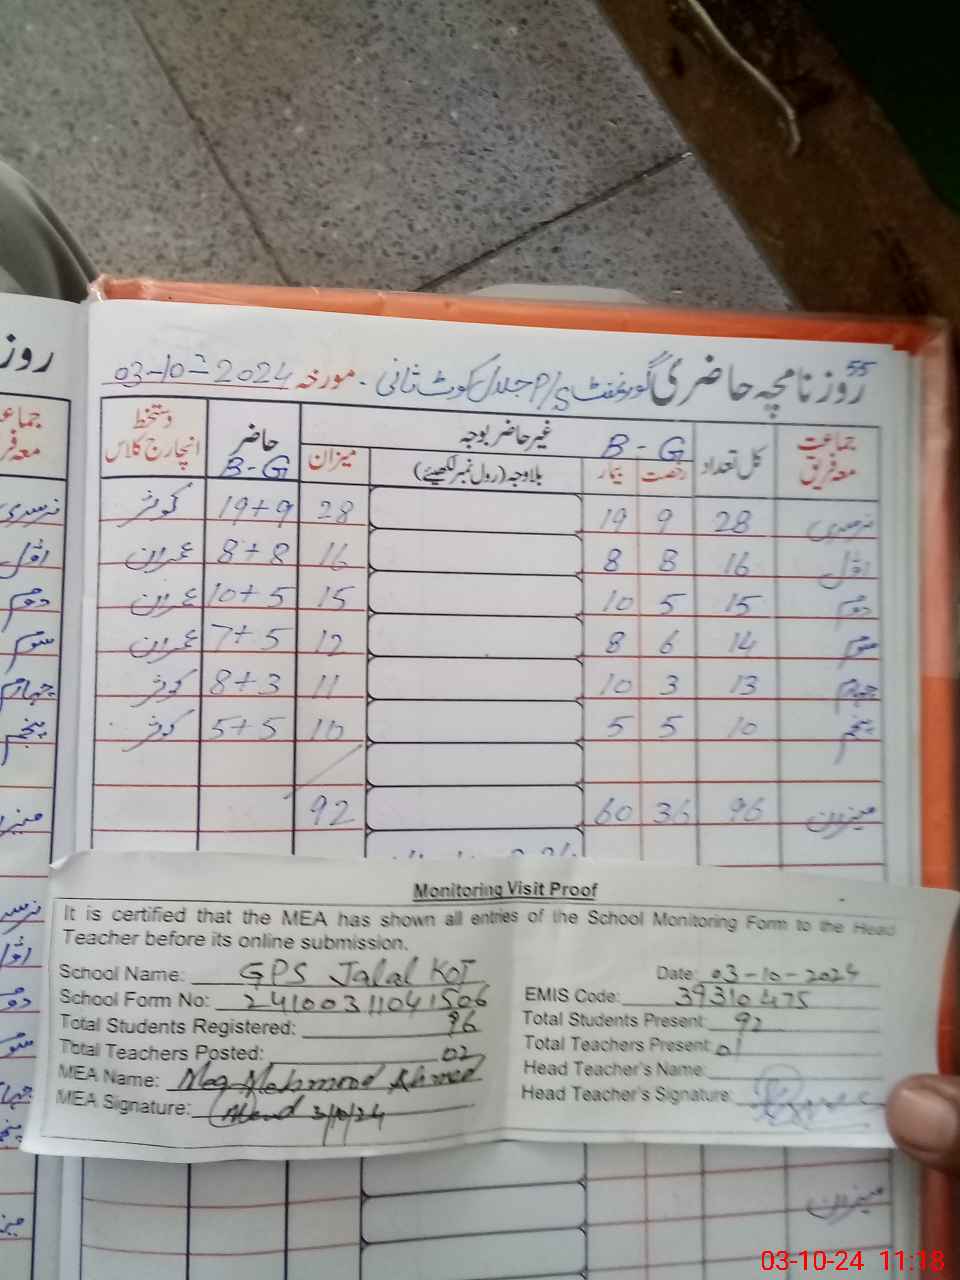 55
روزنامچہ حاضری گورنمنٹ P/S جلال کوٹ ثانی - مورخہ 03-10-2024
جماعت معہ فریق کل تعداد B - G غیر حاضر بوجہ حاضر B-G دستخط انچارج کلاس
رخصت بیمار بلاوجہ (رول نمبر لکھیئے) میزان
نرسری 28 9 19 28 19+9 کوثر
اوّل 16 8 8 16 8+8 عمران
دوم 15 5 10 15 10+5 عمران
سوم 14 6 8 12 7+5 عمران
چہارم 13 3 10 11 8+3 کوثر
پنجم 10 5 5 10 5+5 کوثر
میزان 96 36 60 92
Monitoring Visit Proof
It is certified that the MEA has shown all entries of the School Monitoring Form to the Head
Teacher before its online submission.
School Name: GPS Jalal KOT Date: 03-10-2024
School Form No: 24100311041506 EMIS Code: 39310475
Total Students Registered: 96 Total Students Present: 92
Total Teachers Posted: 02 Total Teachers Present: 01
MEA Name: Mehmood Ahmed Head Teacher's Name:
MEA Signature: 3/10/24 Head Teacher's Signature:
میزان
03-10-24 11:18